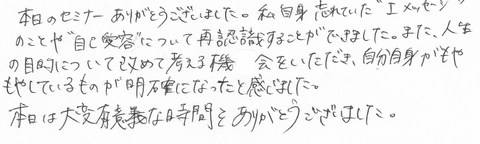 本日のセミナーありがとうございました。私自身忘れていた"Iメッセージ"
のことや"自己受容"について再認識することができました。また、人生
の目的について改めて考える機会をいただき、自分自身がもや
もやしているものが明確になったと感じました。
本日は大変有意義な時間をありがとうございました。